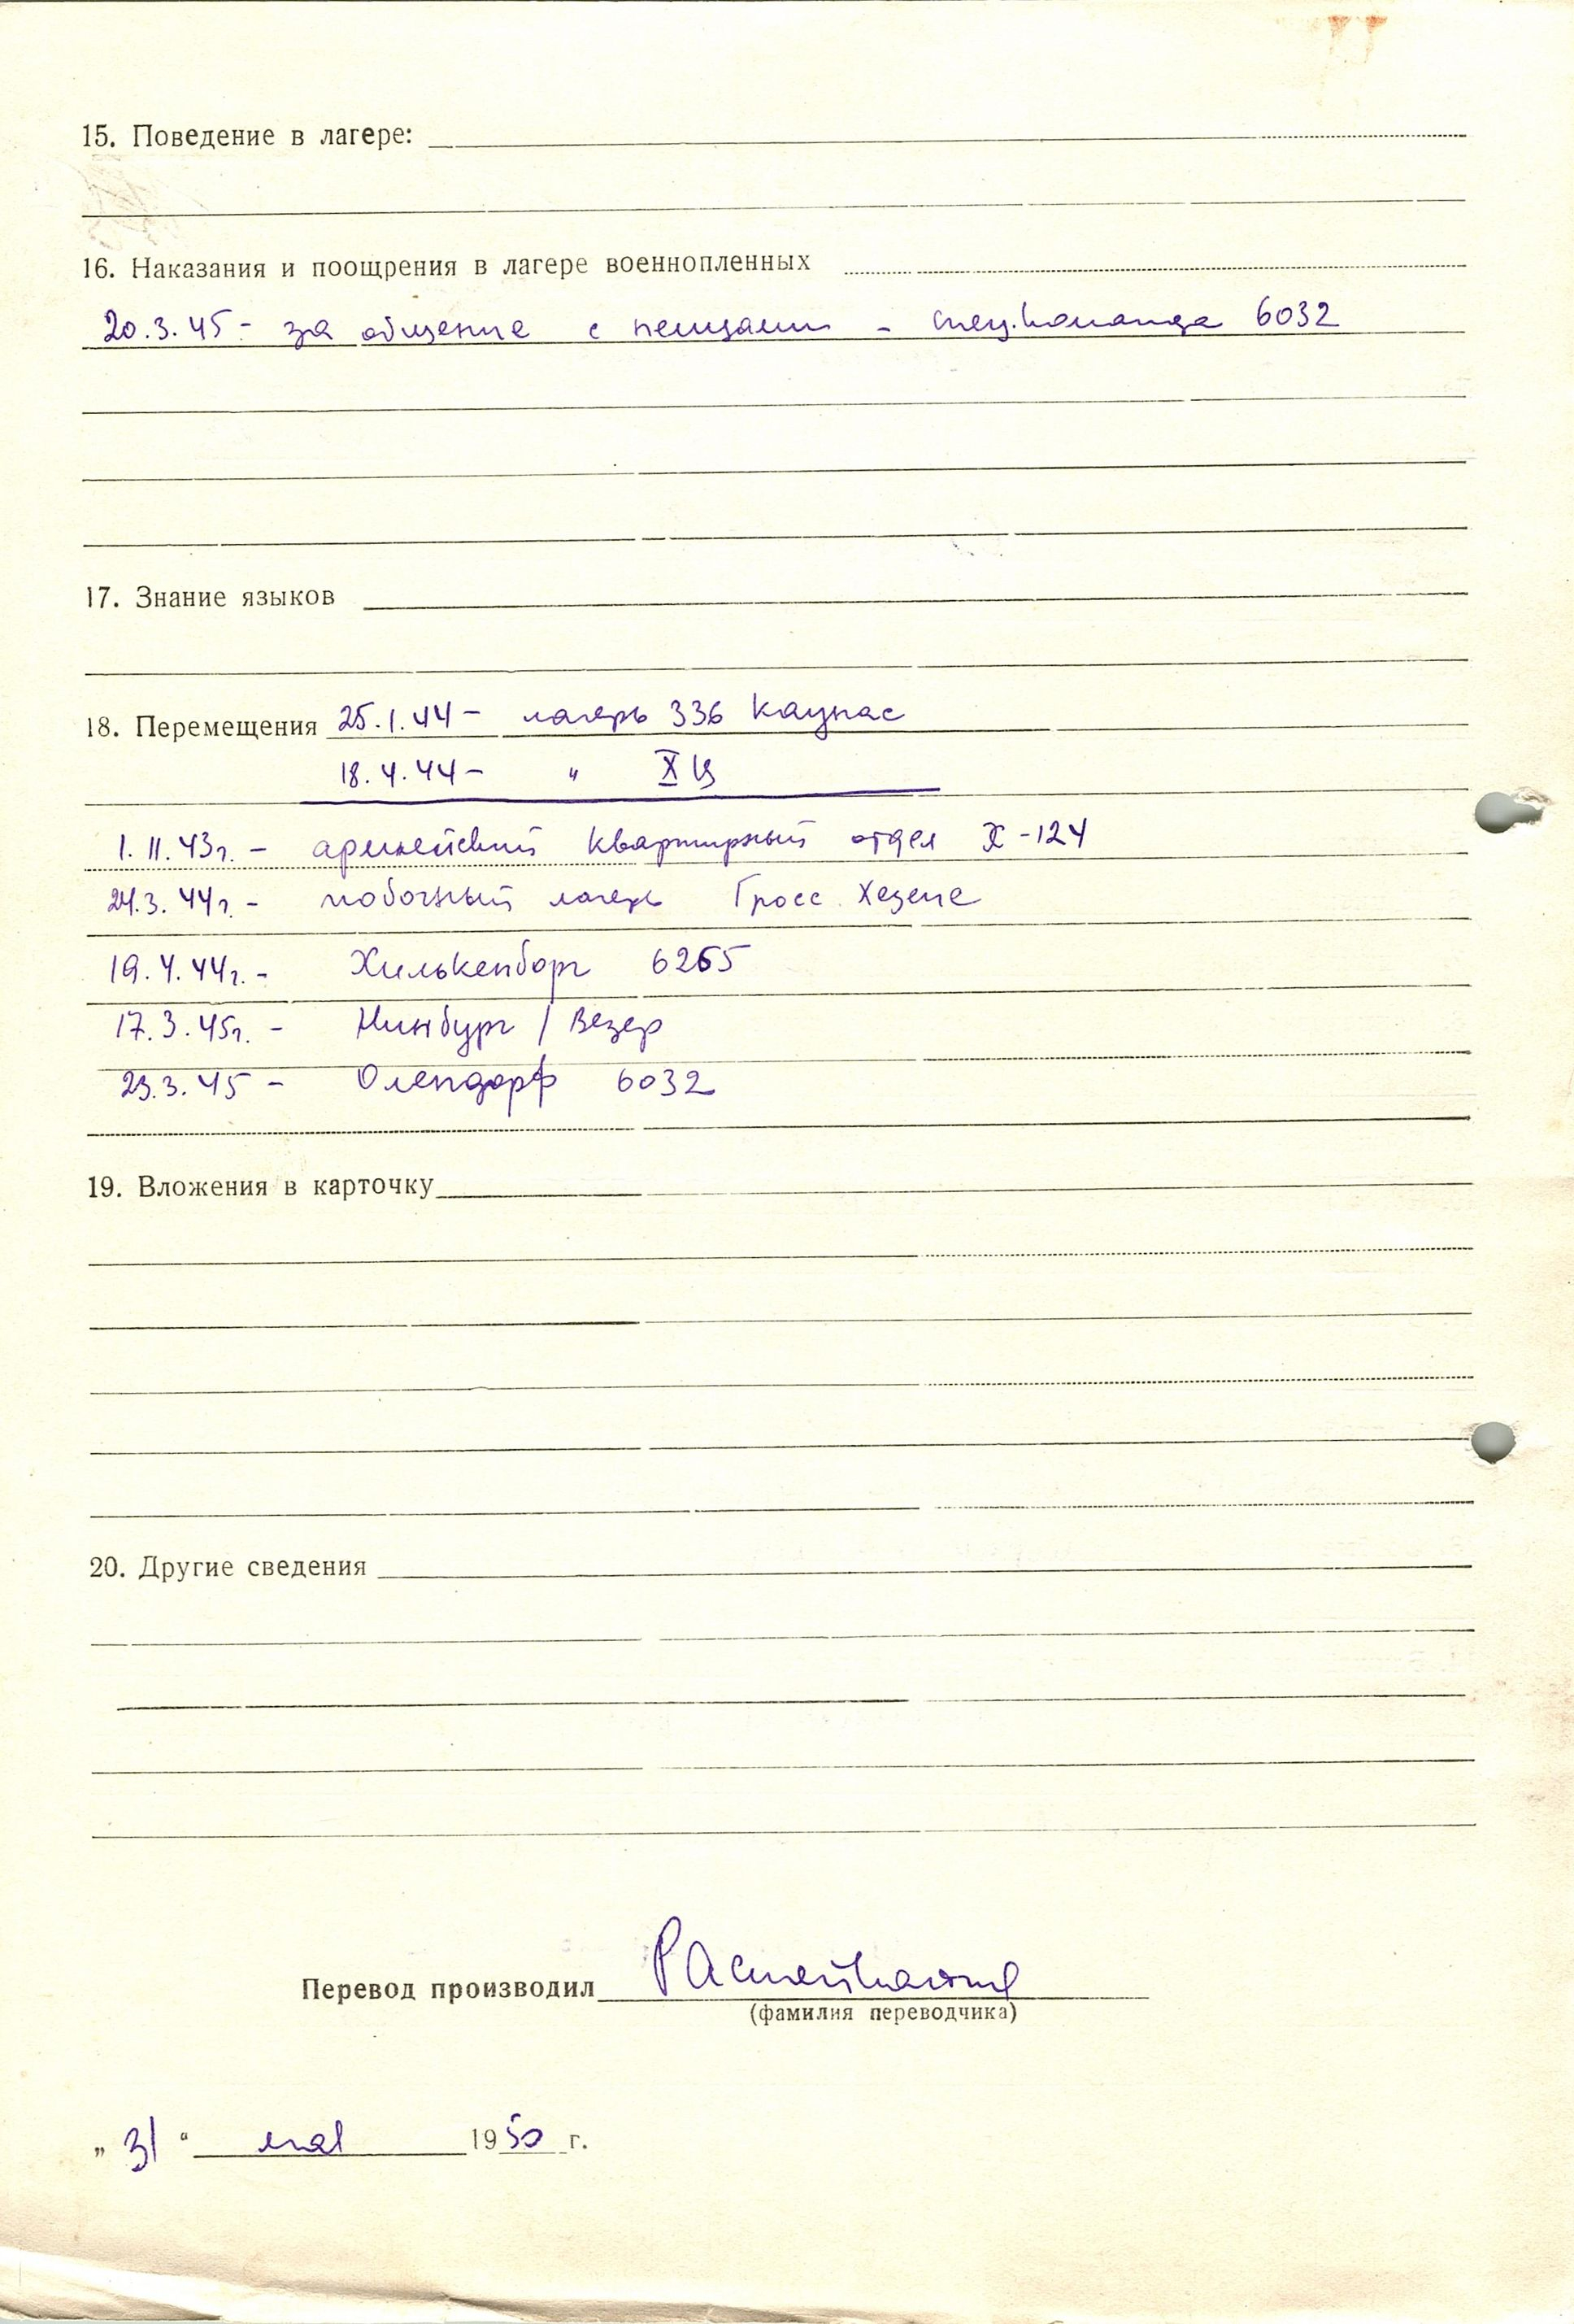 15. Поведение в лагере:
16. Наказания и поощрения в лагере военнопленных
20.3.45 - за общение с немцами - спец.команда 6032
17. Знание языков
18. Перемещения 25.1.44 - лагерь 336 Каунас
18.4.44 - " X Ц
1.11.43г. - армейский квартирный отдел X -124
24.3.44г. - побочный лагерь Гросс Хезепе
19.4.44г. - Хилькенборг 6265
17.3.45г. - Нинбург / Везер
23.3.45 - Олендорф 6032
19. Вложения в карточку
20. Другие сведения
Перевод производил
(фамилия переводчика)
„ 31 “ мая 1950 г.